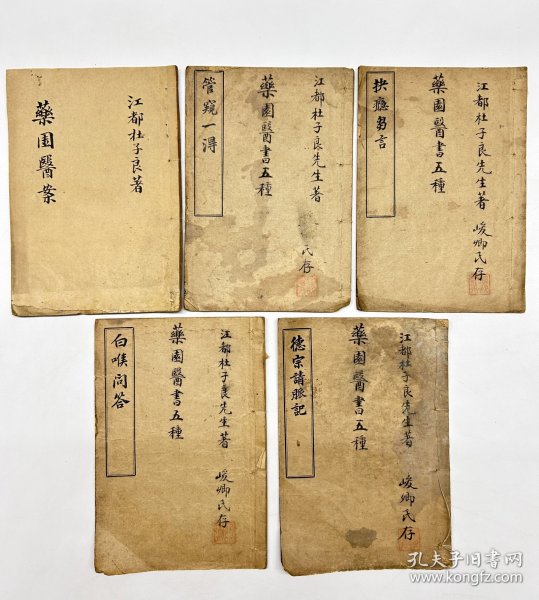 江都杜子良著
藥園醫案
江都杜子良先生著
峻卿氏存
藥園醫書五種
管窺一得
江都杜子良先生著
峻卿氏存
藥園醫書五種
抉癮芻言
江都杜子良先生著
峻卿氏存
藥園醫書五種
白喉問答
江都杜子良先生著
峻卿氏存
藥園醫書五種
德宗請脈記
孔夫子旧书网
www.kongfz.com